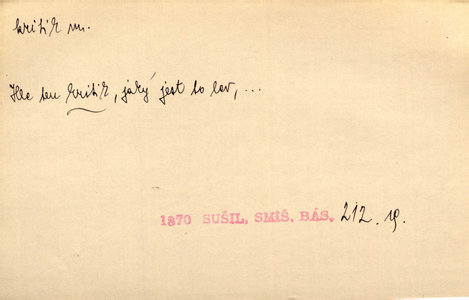 kritik m.
Hle ten kritik, jaký jest to lev, ...
1870 SUŠIL, SMÍŠ. BÁS. 212. 19.